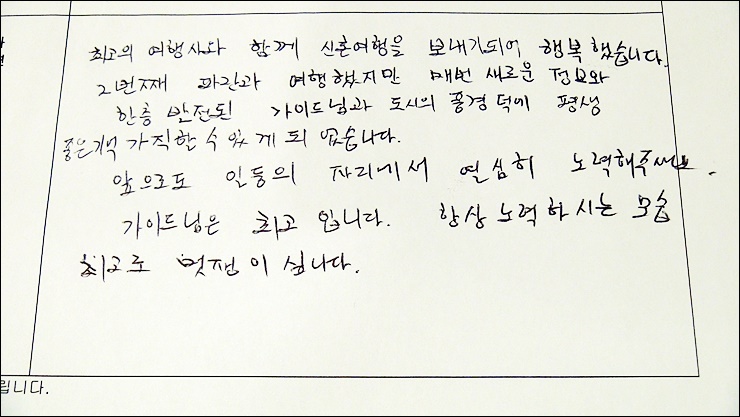 최고의 여행사와 함께 신혼여행을 보내기되어 행복했습니다.
2번째 파란과 여행했지만 매번 새로운 정보와
한층 발전된 가이드님과 도시의 풍경 덕에 평생
좋은기억 가직할 수 있게 되었습니다.
앞으로도 일등의 자리에서 열심히 노력해주세요.
가이드님은 최고 입니다. 항상 노력하시는 모습
최고로 멋쟁이 십니다.
립니다.